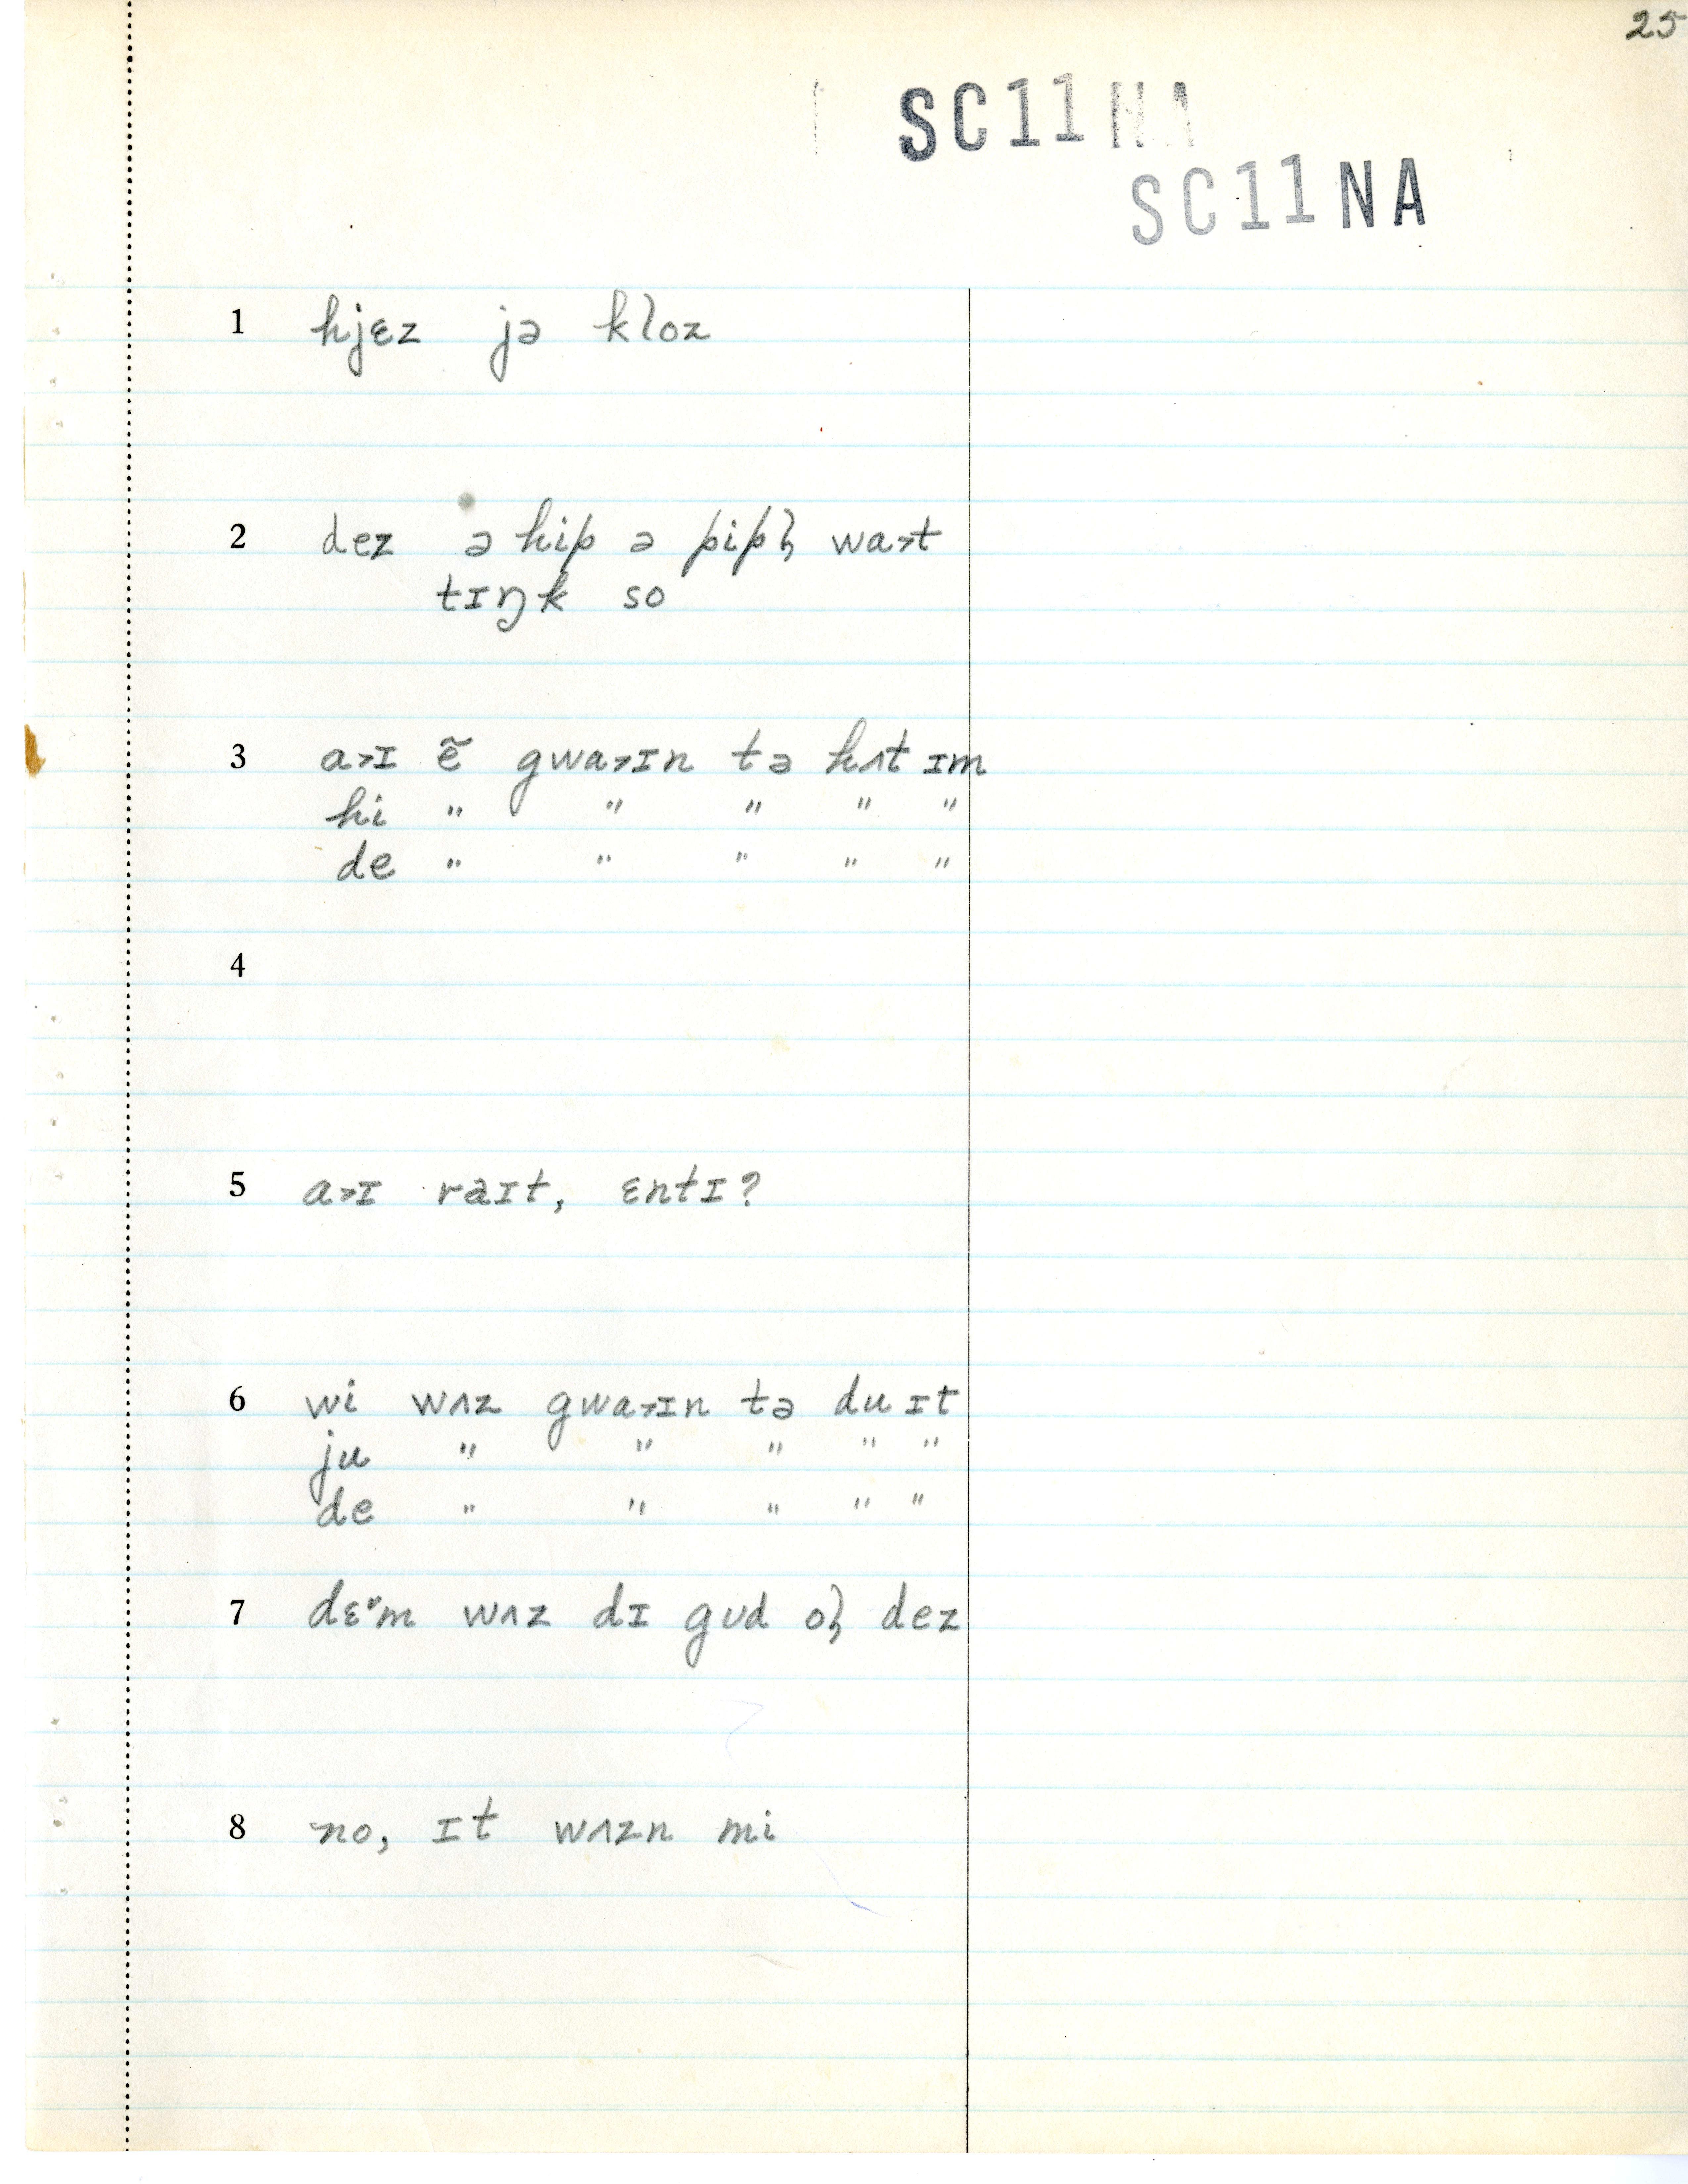 25
SC11NA
SC11NA
1 hjɛz jə kloz
2 dez ə hip ə pipl̩ wa˃t
tɪŋk so
3 a˃ɪ ẽ gwa˃ɪn tə hʌt ɪm
hi " " " " "
de " " " " "
4
5 a˃ɪ raɪt, ɛntɪ?
6 wi wʌz gwa˃ɪn tə du ɪt
ju " " " " "
de " " " " "
7 dɛᵊm wʌz dɪ gud ol̩ dez
8 no, ɪt wʌzn mi